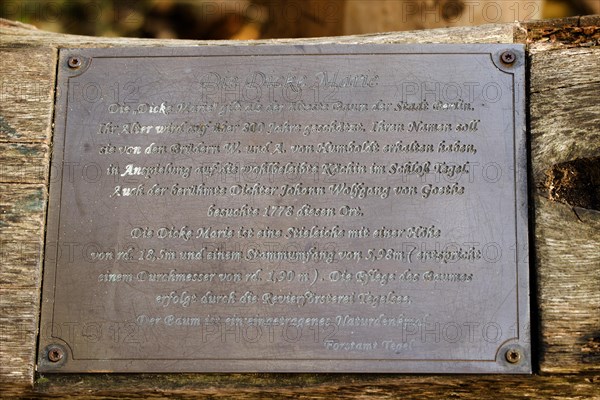 Die Dicke Marie
Die „Dicke Marie" gilt als der älteste Baum der Stadt Berlin.
Ihr Alter wird auf über 800 Jahre geschätzt. Ihren Namen soll
sie von den Brüdern W. und A. von Humboldt erhalten haben,
in Anspielung auf die wohlbeleibte Köchin im Schloß Tegel.
Auch der berühmte Dichter Johann Wolfgang von Goethe
besuchte 1778 diesen Ort.
Die Dicke Marie ist eine Stieleiche mit einer Höhe
von rd. 18,5m und einem Stammumfang von 5,98m ( entspricht
einem Durchmesser von rd. 1,90 m ). Die Pflege des Baumes
erfolgt durch die Revierförsterei Tegelsee.
Der Baum ist ein eingetragenes Naturdenkmal.
Forstamt Tegel